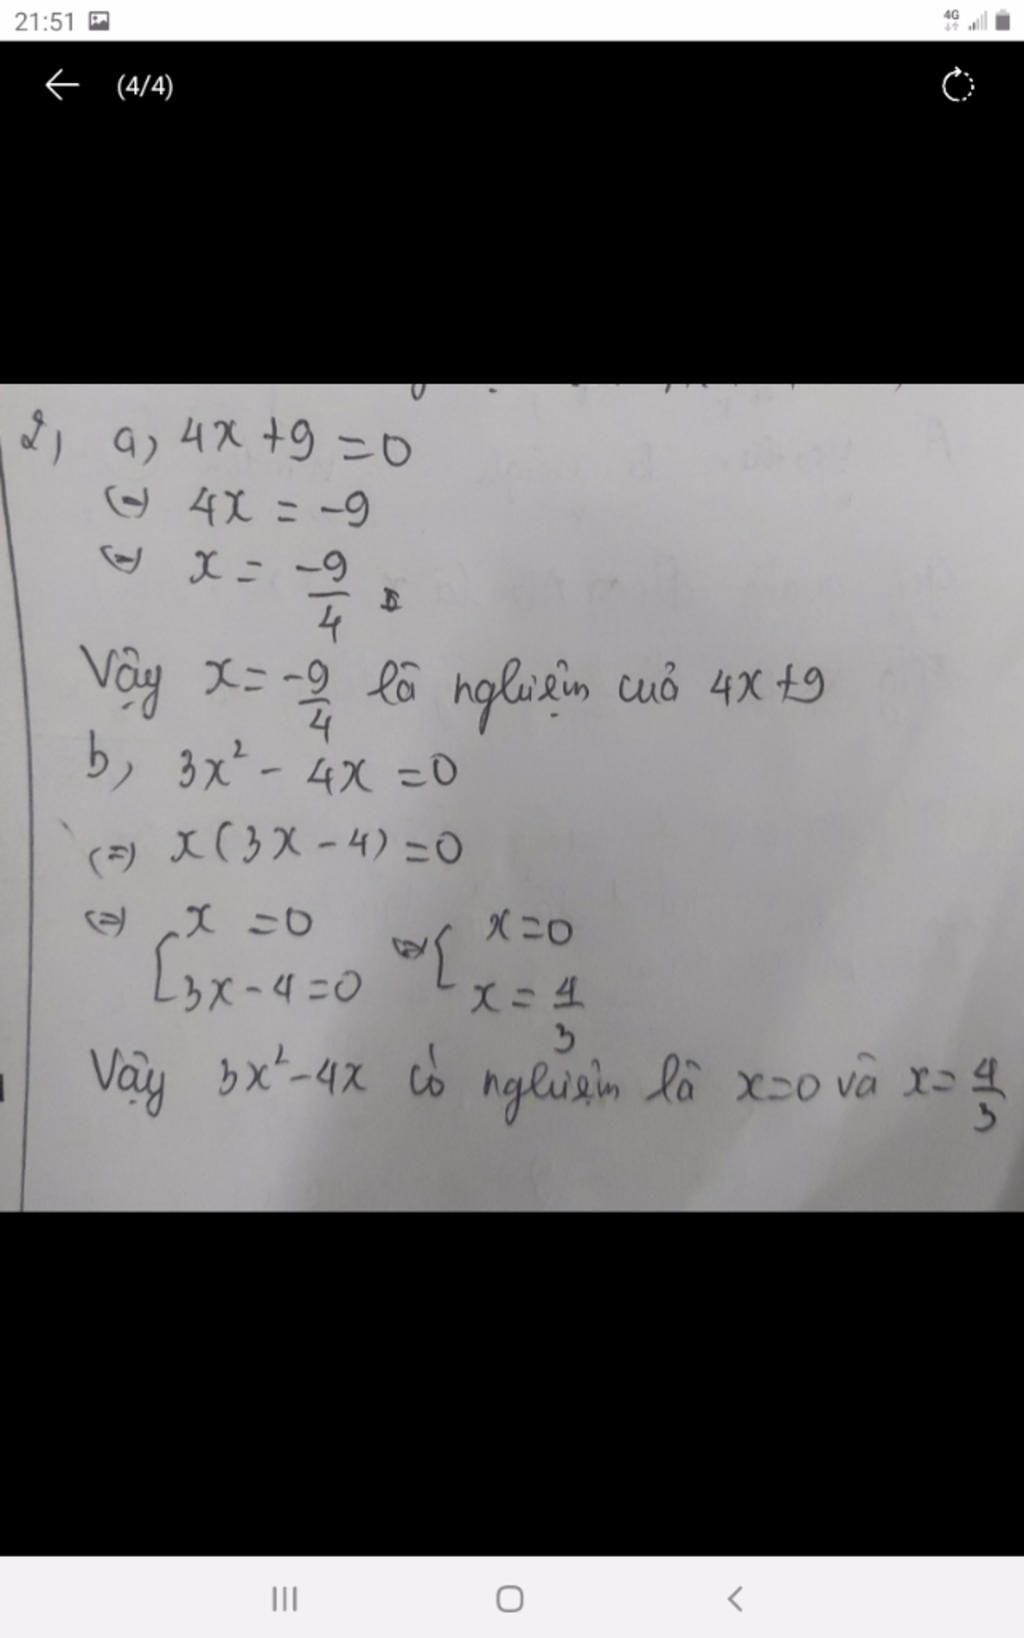 21:51
4G
(4/4)
2, a, 4x + 9 = 0
(=) 4x = -9
(=) x = -9/4
Vậy x = -9/4 là nghiệm của 4x + 9
b, 3x² - 4x = 0
(=) x(3x - 4) = 0
(=) [ x = 0 (=) [ x = 0
3x - 4 = 0 x = 4/3
Vậy 3x² - 4x có nghiệm là x = 0 và x = 4/3